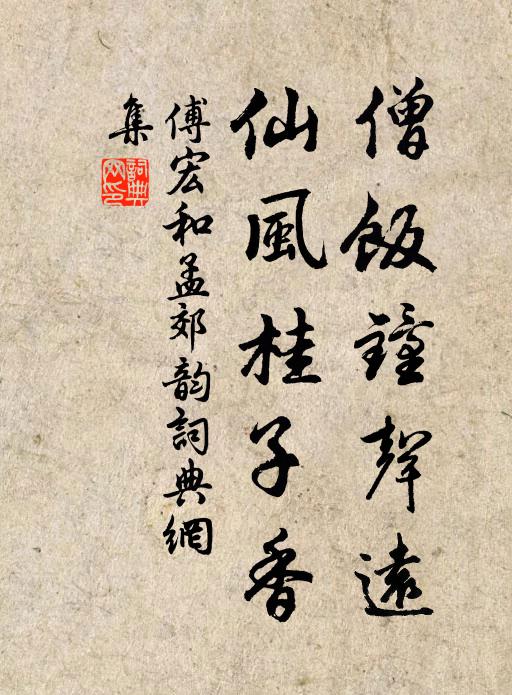 僧飯鐘聲遠
仙風桂子香
傅宏和孟郊韵詞典網
集
詞典網印